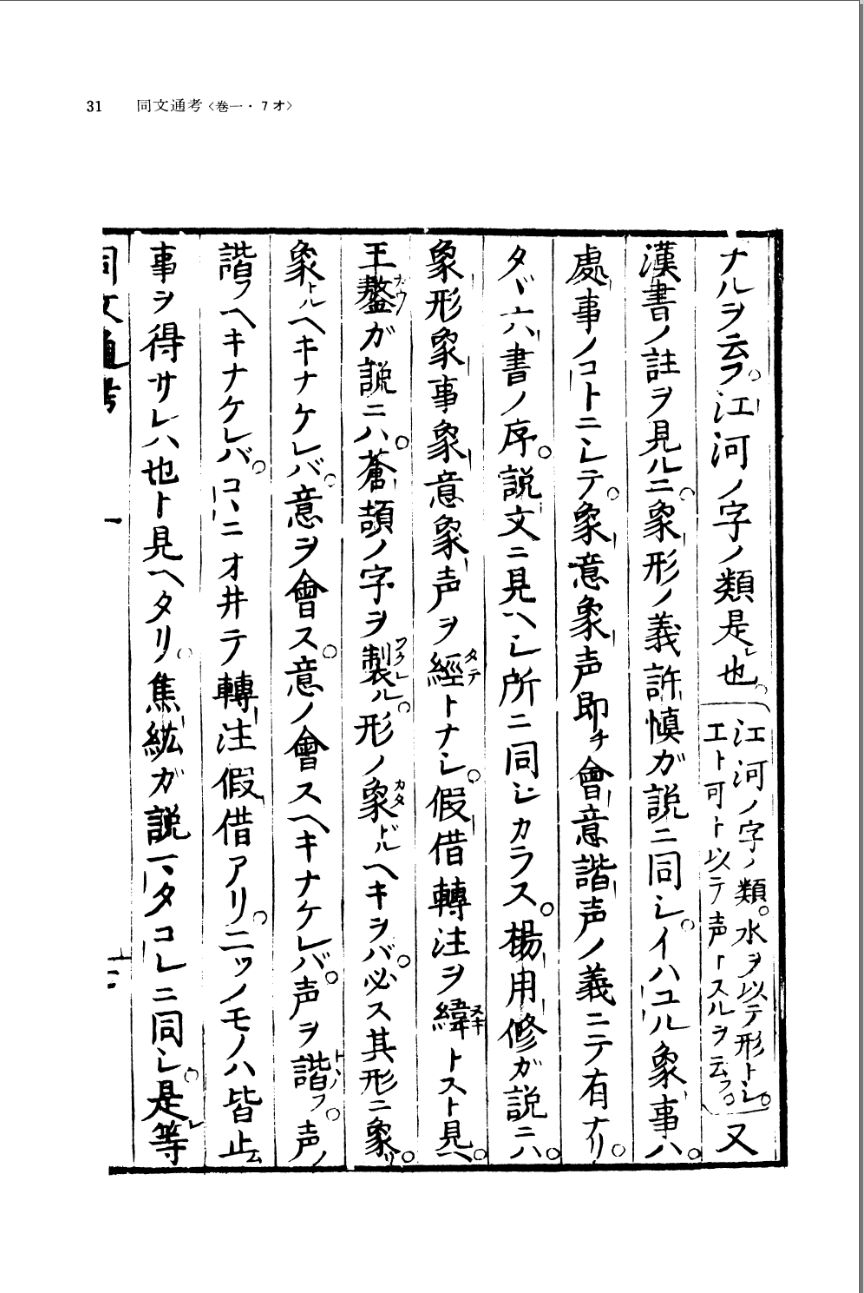 31 同文通考〈巻一・7オ〉
ナルヲ云フ。江河ノ字ノ類是也。
江河ノ字ノ類。水ヲ以テ形トシ。
工ト可ト以テ声トスルヲ云フ。
又
漢書ノ註ヲ見ルニ。象形ノ義許慎ガ説ニ同シ。イハユル象事ハ。
處事ノコトニシテ。象意象声即チ會意諧声ノ義ニテ有ナリ。
タヾ六書ノ序。説文ニ見ヘシ所ニ同シカラス。楊用修ガ説ニハ。
象形象事象意象声ヲ經タテトナシ。假借轉注ヲ緯ヌキトスト見ヘ。
王鏊ガウガ説ニハ。蒼頡ノ字ヲ製ツクレル。形ノ象カタドルヘキヲバ。必ス其形ニ象リ。
象トルヘキナケレバ。意ヲ會ス。意ノ會スヘキナケレバ。声ヲ諧トヽノフ。声ノ
諧フヘキナケレバ。コヽニオ井テ轉注假借アリ。二ツノモノハ皆止ム
事ヲ得サレハ也ト見ヘタリ。焦紘ガ説マタコレニ同シ。是等
同文通考 一